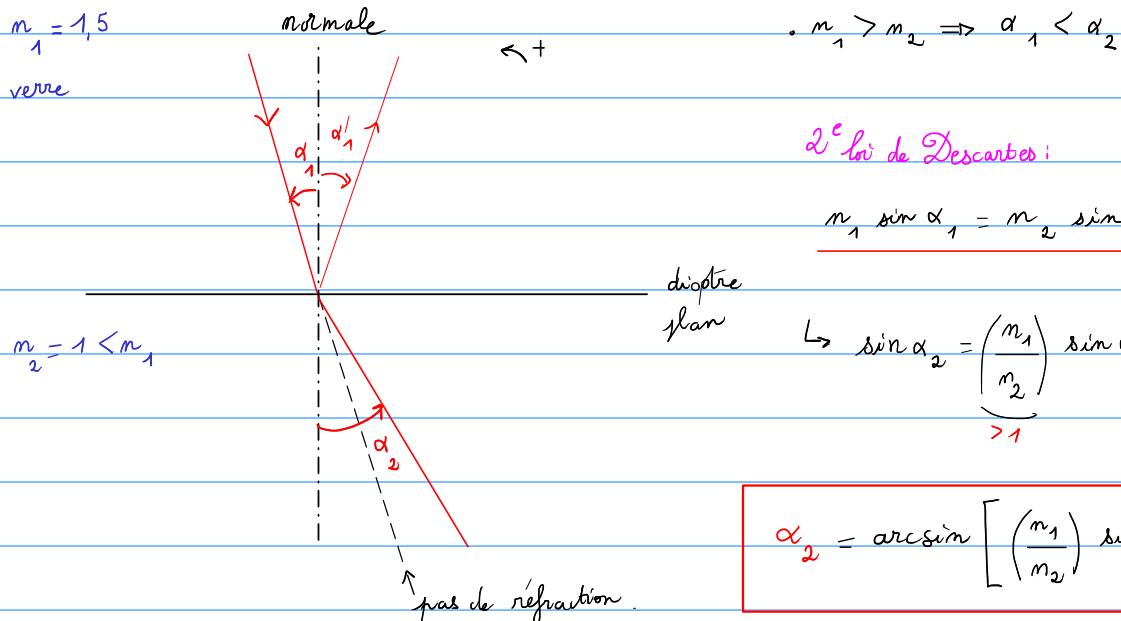 n₁ = 1,5
verre
normale
+
α₁
α₁'
dioptre
plan
n₂ = 1 < n₁
α₂
pas de réfraction.
. n₁ > n₂ ⇒ α₁ < α₂
2ᵉ loi de Descartes :
n₁ sin α₁ = n₂ sin
↳ sin α₂ = (n₁/n₂) sin
> 1
α₂ = arcsin [ (n₁/n₂) si